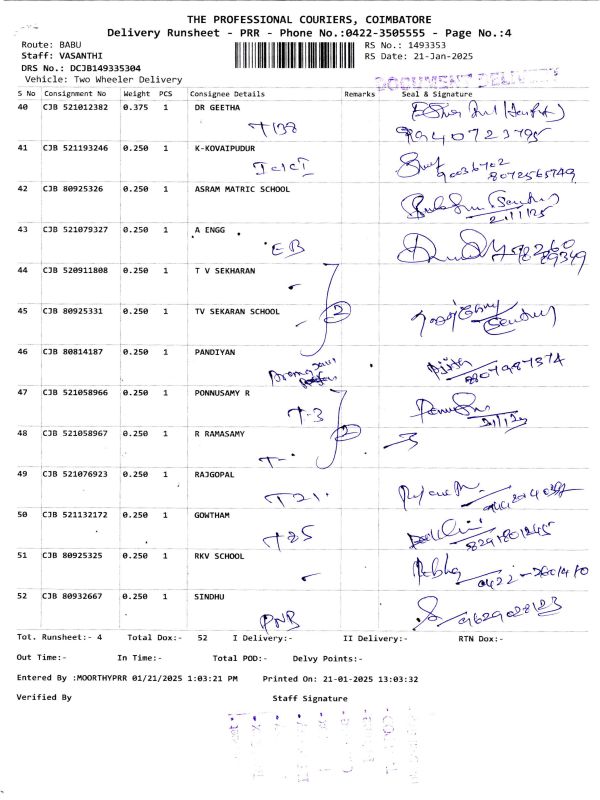 THE PROFESSIONAL COURIERS, COIMBATORE
Delivery Runsheet - PRR - Phone No.:0422-3505555 - Page No.:4
Route: BABU RS No.: 1493353
Staff: VASANTHI RS Date: 21-Jan-2025
DRS No.: DCJB149335304
Vehicle: Two Wheeler Delivery DOCUMENT DELIVERY
S No Consignment No Weight PCS Consignee Details Remarks Seal & Signature
40 CJB 521012382 0.375 1 DR GEETHA
T138 9940723795
41 CJB 521193246 0.250 1 K-KOVAIPUDUR
ICICI 8072565749
42 CJB 80925326 0.250 1 ASRAM MATRIC SCHOOL
21/1/25
43 CJB 521079327 0.250 1 A ENGG
EB
44 CJB 520911808 0.250 1 T V SEKHARAN
2
45 CJB 80925331 0.250 1 TV SEKARAN SCHOOL
46 CJB 80814187 0.250 1 PANDIYAN
47 CJB 521058966 0.250 1 PONNUSAMY R
T-3
2
48 CJB 521058967 0.250 1 R RAMASAMY
T-
49 CJB 521076923 0.250 1 RAJGOPAL
T21
50 CJB 521132172 0.250 1 GOWTHAM
T25
51 CJB 80925325 0.250 1 RKV SCHOOL
52 CJB 80932667 0.250 1 SINDHU
PNB 9629028123
Tot. Runsheet:- 4 Total Dox:- 52 I Delivery:- II Delivery:- RTN Dox:-
Out Time:- In Time:- Total POD:- Delvy Points:-
Entered By :MOORTHYPRR 01/21/2025 1:03:21 PM Printed On: 21-01-2025 13:03:32
Verified By Staff Signature